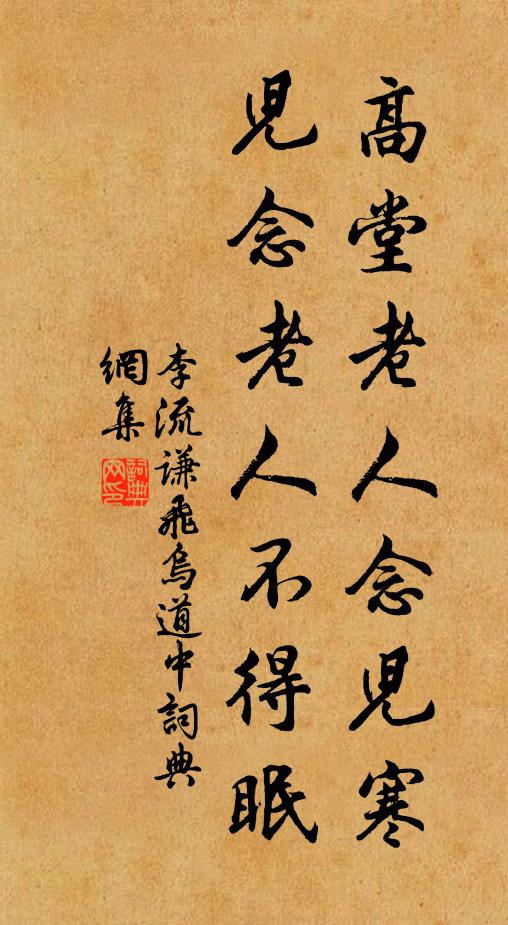 高堂老人念兒寒
兒念老人不得眠
李流謙飛烏道中詞典
網集
詞典網印